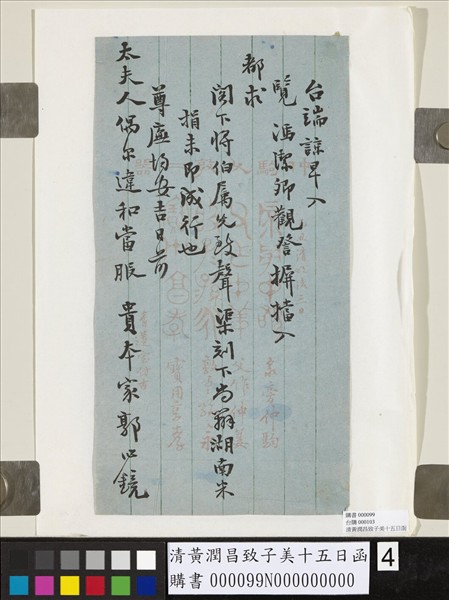 台端諒早入
覽馮潔卿觀詧摒擋入
都求
閣下將伯屬先致聲渠刻下尚辦湖南米
捐未即成行也
尊庽均安吉日前
太夫人偶尔違和當服貴本家郭心鏡
購書 000099
台購 000103
清黃潤昌致子美十五日函
清黃潤昌致子美十五日函
購書 000099N000000000
4